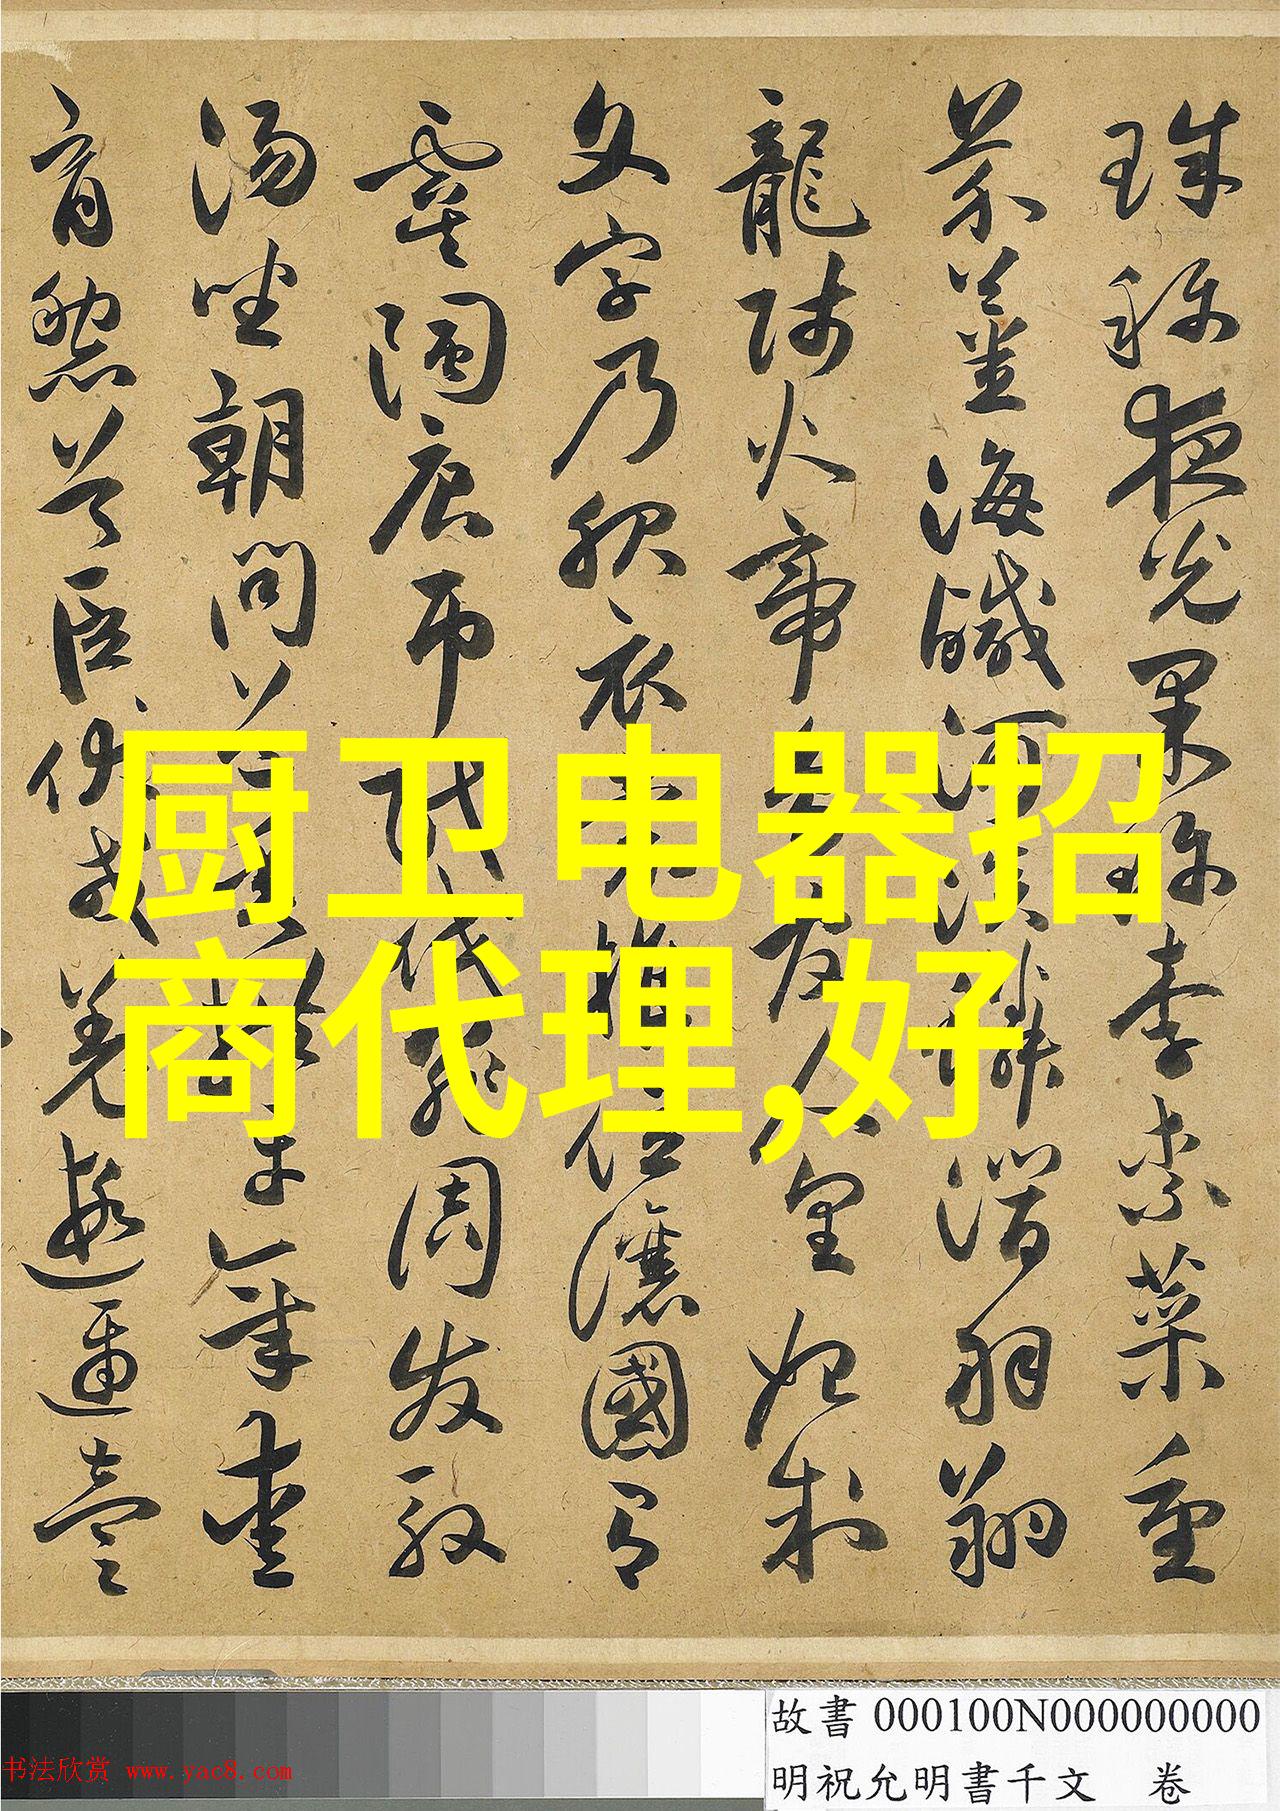 珠稱夜光果珎李柰菜重
芥薑海鹹河淡鱗潛羽翔
龍師火帝鳥官人皇始制
文字乃服衣裳推位讓國有
虞陶唐弔民伐罪周发殷
湯坐朝問道垂拱平章愛
育黎首臣伏戎羌遐邇壹
厨卫电器招
商代理,好
故書 000100N000000000
明祝允明書千文 卷
书法欣赏 www.yac8.com